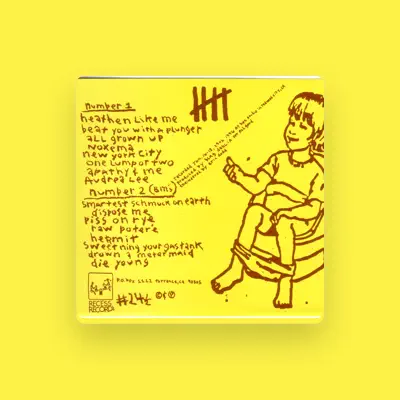 number 1
heathen Like me
beat you with a plunger
all grown up
Nokema
new york City
one lump or two
apathy & me
Audrea Lee
number 2 (BM's)
smartest schmuk on earth
dispose me
Piss on rye
raw power2
hermit
sweetning your gas tank
drown a meter maid
die young
P.O. Box 1112 Torrance, CA 90505
#24½ ©&℗
RECESS
RECORDS